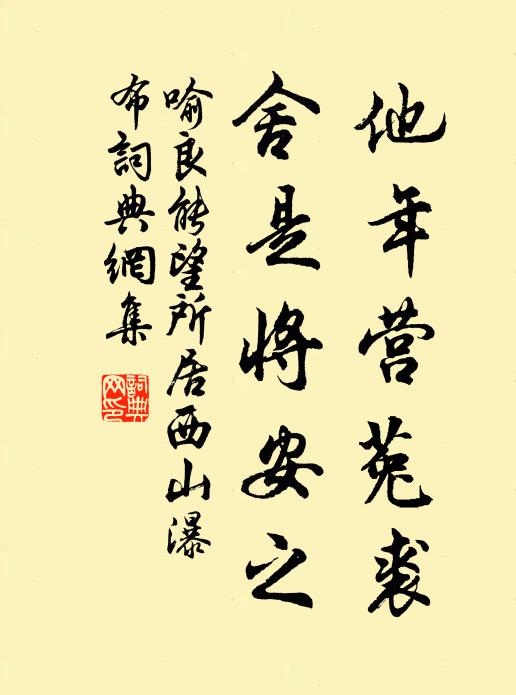 他年营菟裘
舍是将安之
喻良能望所居西山瀑
布詞典網集
詞典
网印